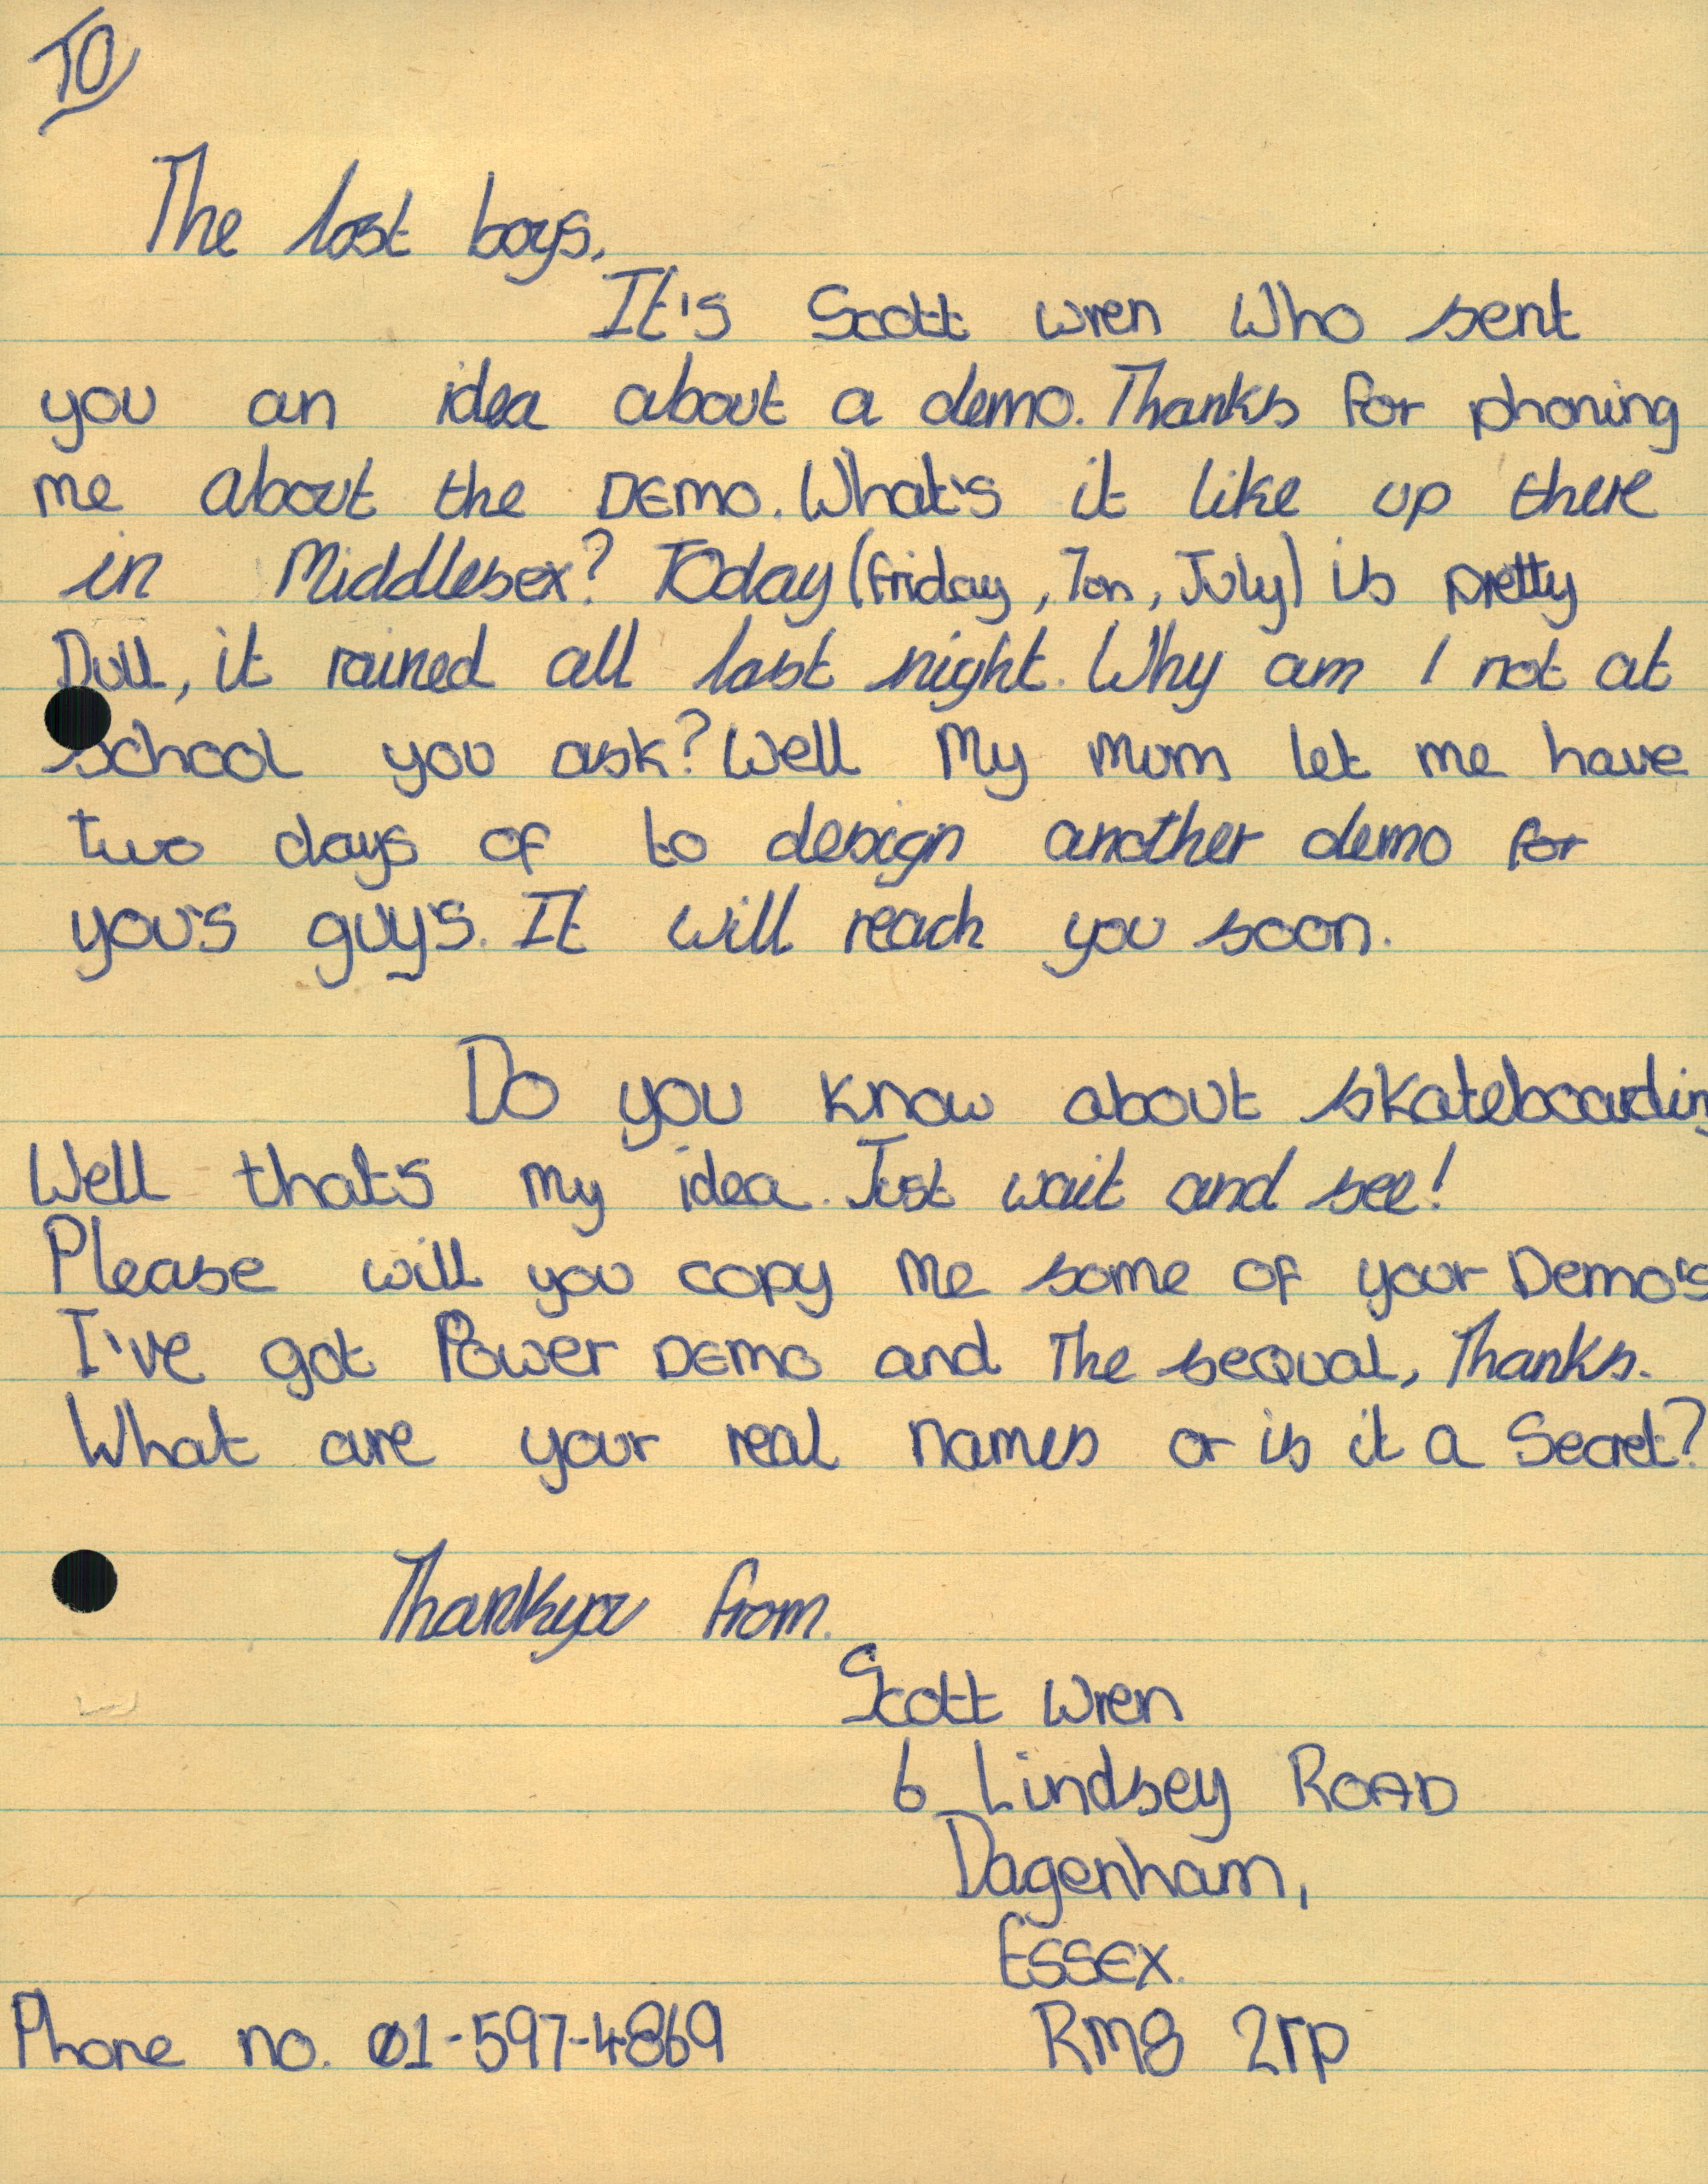 TO
The lost boys.
It's Scott wren Who sent
you an idea about a demo. Thanks for phoning
me about the DEMO. What's it like up there
in Middlesex? TOday (friday, 7on, July) is pretty
Dull, it rained all last night. Why am I not at
school you ask? Well My mum let me have
two days of to design another demo for
you's guy's. It will reach you soon.
Do you know about skateboarding
Well that's my idea. Just wait and see!
Please will you copy me some of your Demo's
I've got Power DEMO and The seQual, Thanks.
What are your real names or is it a Secret?
Thankyou from.
Scott Wren
6 Lindsey ROAD
Dagenham,
ESSEX.
Phone no. 01-597-4869 RM8 2rp